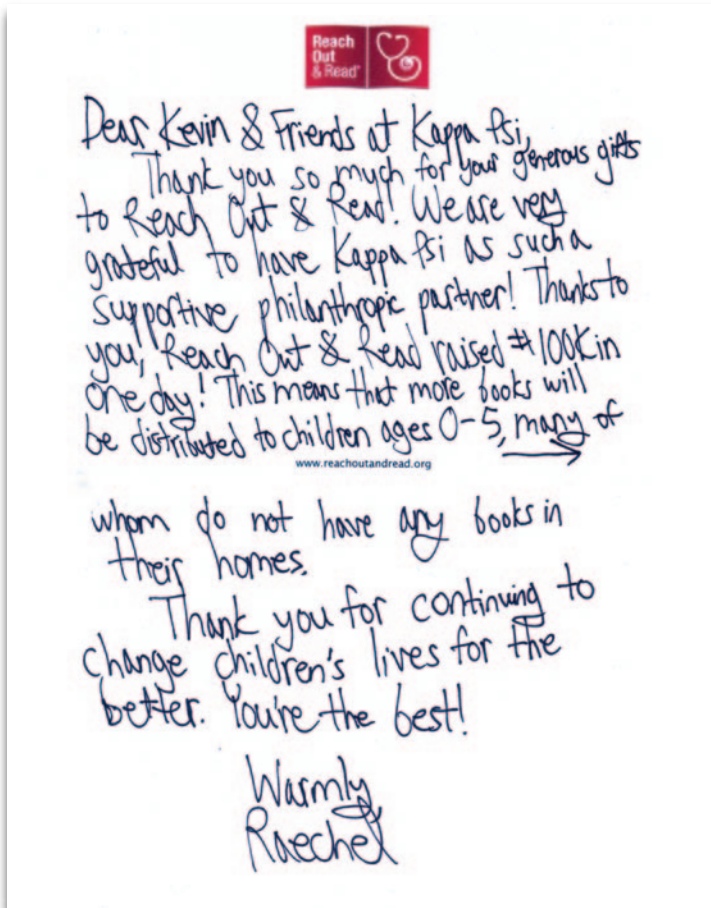 Reach
Out
& Read®
Dear Kevin & Friends at Kappa Psi,
Thank you so much for your generous gifts
to Reach Out & Read! We are very
grateful to have Kappa Psi as such a
supportive philanthropic partner! Thanks to
you, Reach Out & Read raised $100K in
one day! This means that more books will
be distributed to children ages 0-5, many of
www.reachoutandread.org
whom do not have any books in
their homes.
Thank you for continuing to
change children's lives for the
better. You're the best!
Warmly,
Raechel